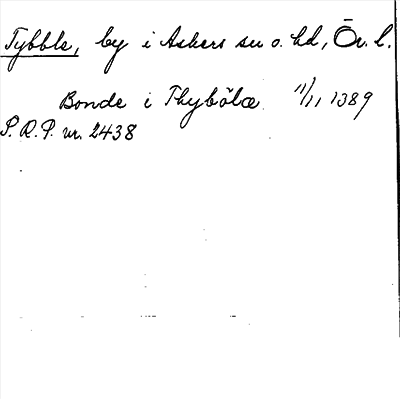 Tybble, by i Askers sn o. hd, Ör. l.
Bonde i Thybölæ 11/11 1389
S. R. P. nr. 2438